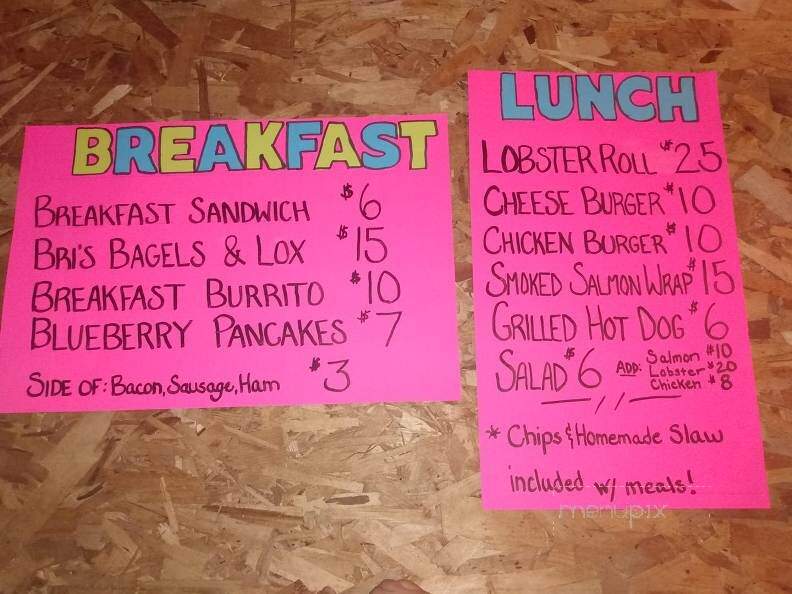 BREAKFAST
BREAKFAST SANDWICH $6
BRI'S BAGELS & LOX $15
BREAKFAST BURRITO $10
BLUEBERRY PANCAKES $7
SIDE OF: Bacon, Sausage, Ham $3
LUNCH
LOBSTER ROLL $25
CHEESE BURGER $10
CHICKEN BURGER $10
SMOKED SALMON WRAP $15
GRILLED HOT DOG $6
SALAD $6 ADD: Salmon $10
Lobster $20
Chicken $8
* Chips & Homemade Slaw
included w/ meals!
menupix